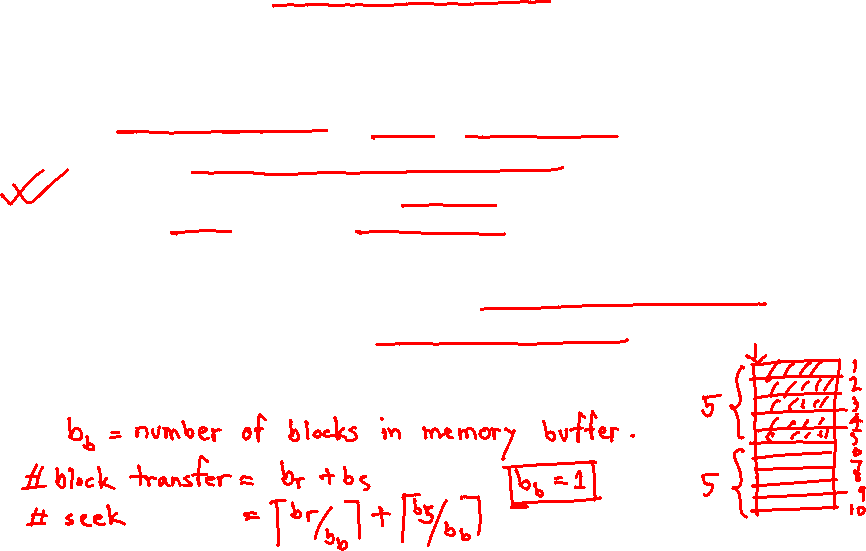 b_b = number of blocks in memory buffer.
# block transfer = br + bs
b_b = 1
# seek = ⌈br/b_b⌉ + ⌈bs/b_b⌉
5
5
1
2
3
4
5
6
7
8
9
10